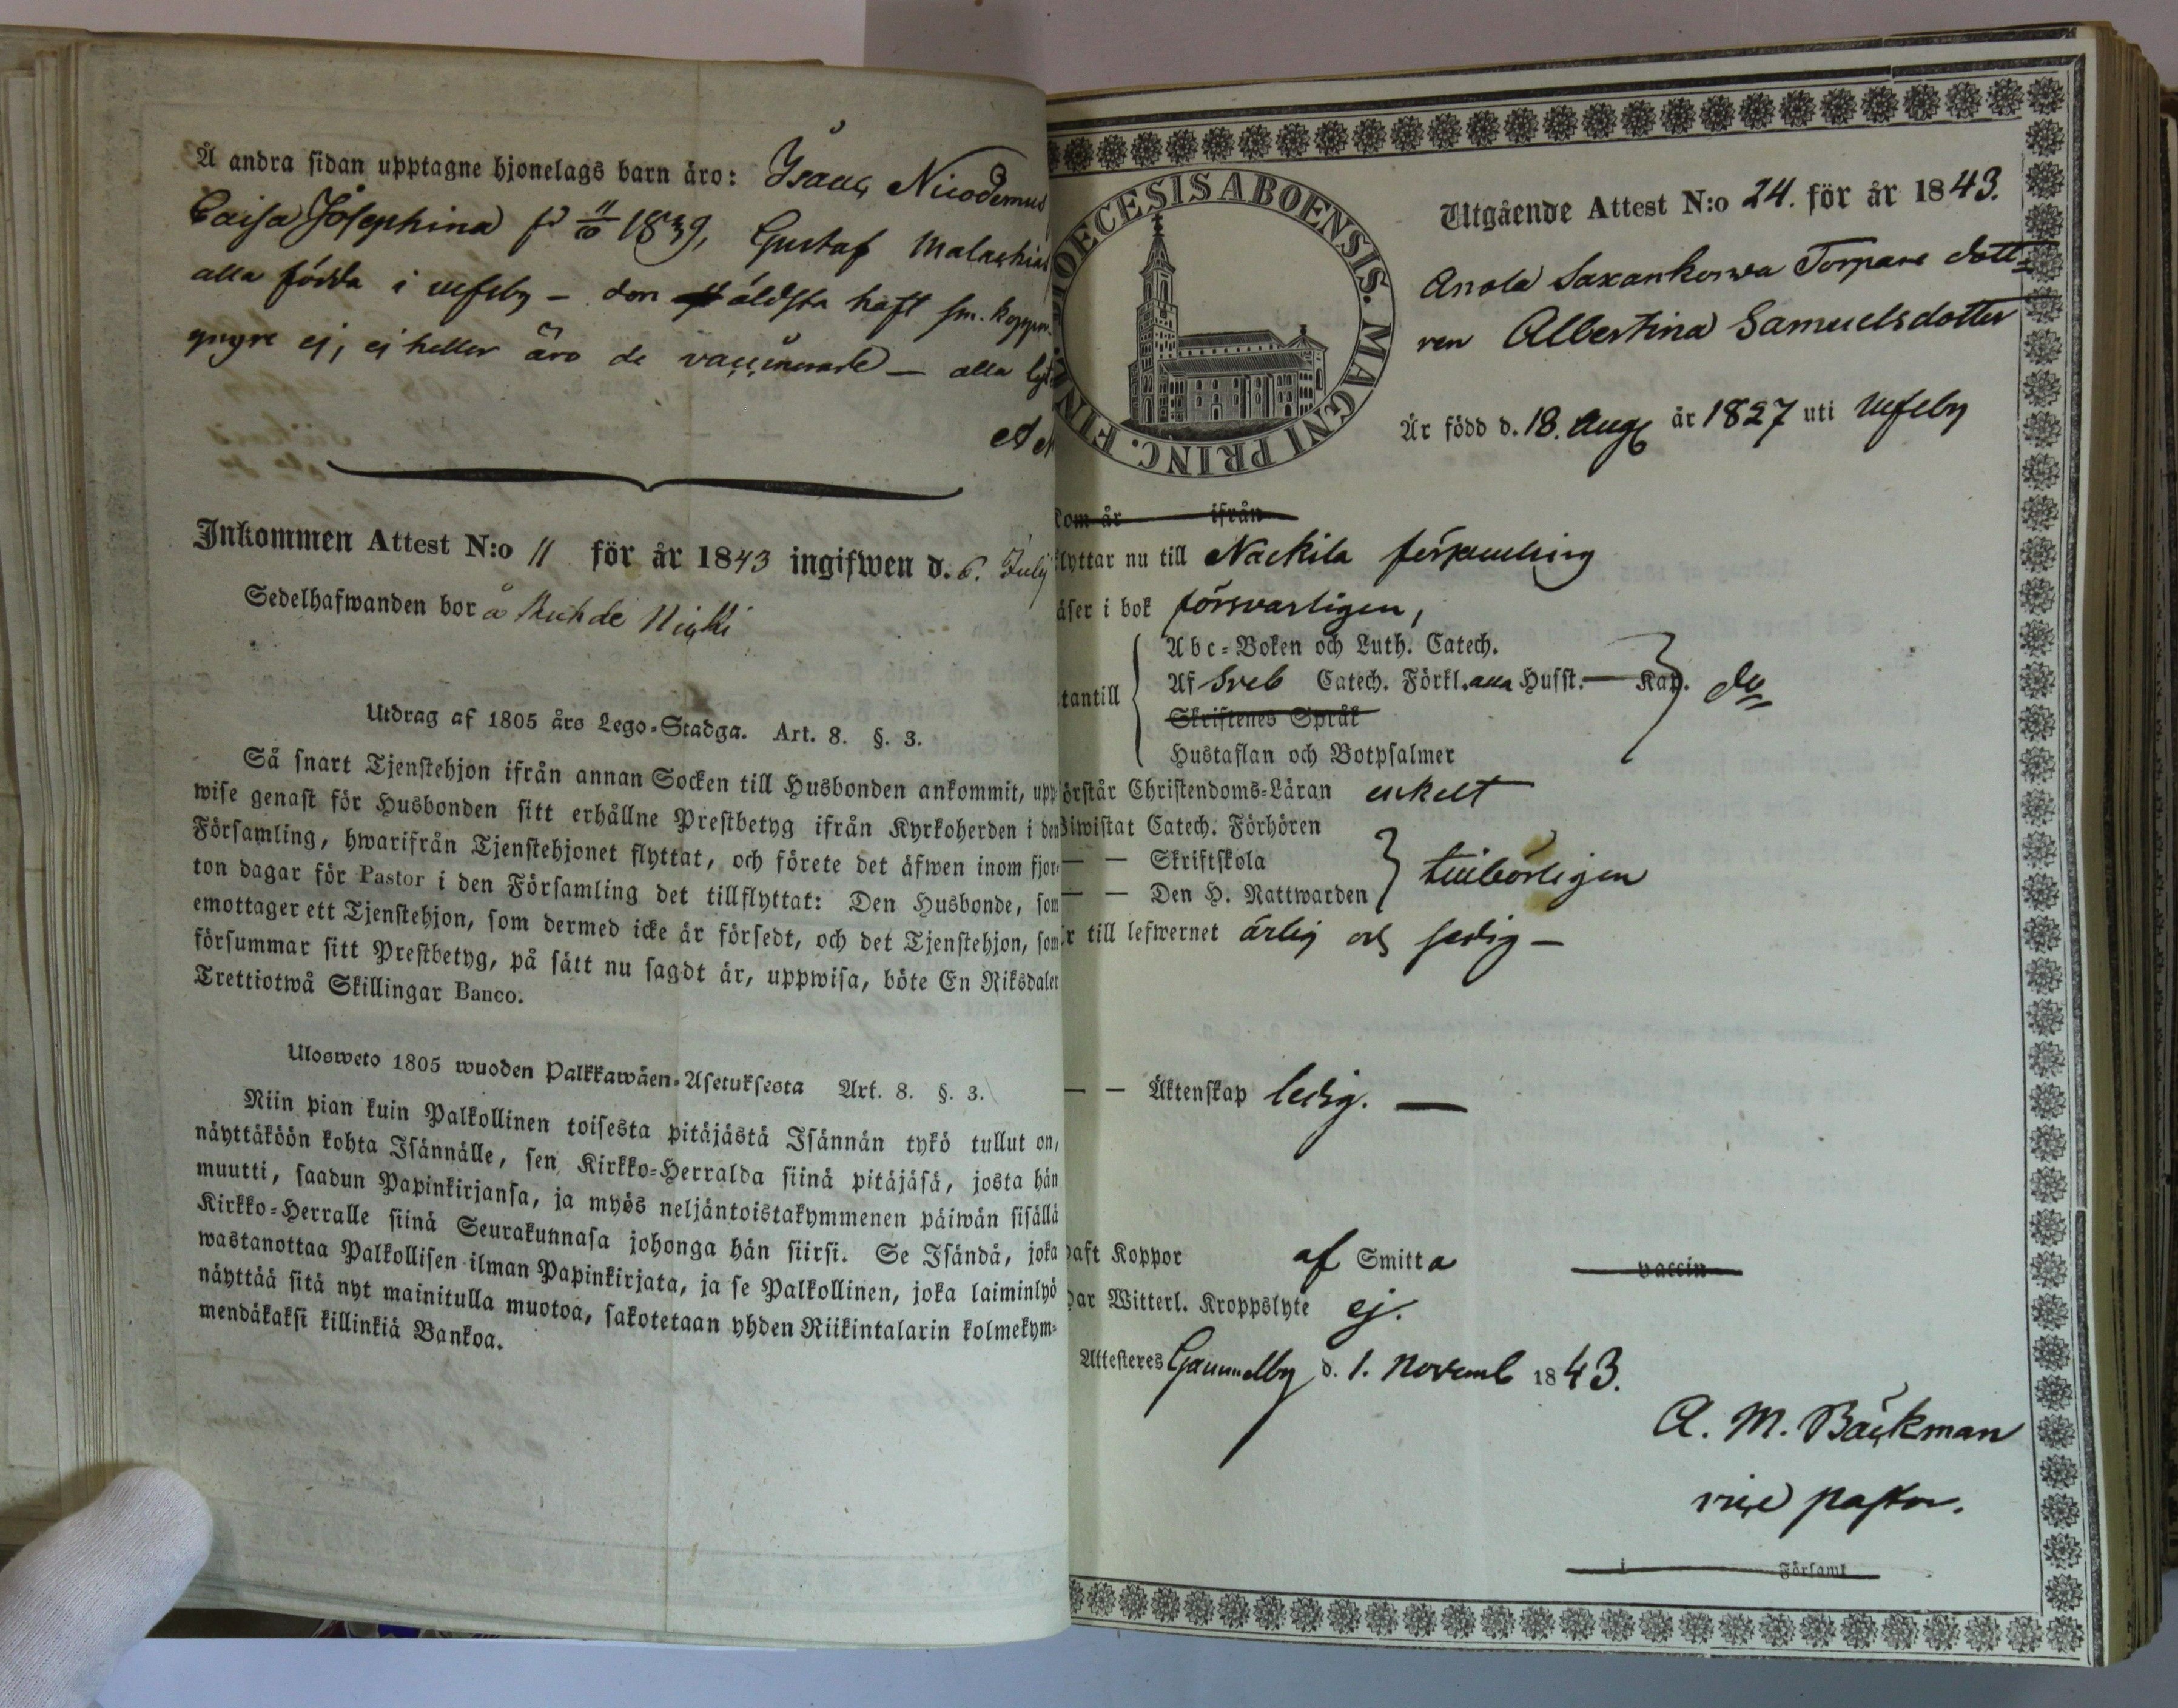 Å andra sidan upptagne hjonelags barn äro: Isaac Nicodemus
Caisa Josephina fd 11/10 1839, Gustaf Malachias
alla födda i Ulfsby – den äldsta haft sm. koppor.
yngre ej, ej heller äro de vaccinerade – alla
Inkommen Attest N:o 11 för år 1843 ingifwen d. 6. July
Sedelhafwanden bor å
Utdrag af 1805 års Lego-Stadga. Art. 8. §. 3.
Så snart Tjenstehjon ifrån annan Socken till Husbonden ankommit, upp-
wise genast för Husbonden sitt erhållne Prestbetyg ifrån Kyrkoherden i den
Församling, hwarifrån Tjenstehjonet flyttat, och förete det äfwen inom fjor-
ton dagar för Pastor i den Församling det tillflyttat: Den Husbonde, som
emottager ett Tjenstehjon, som dermed icke är försedt, och det Tjenstehjon, som
försummar sitt Prestbetyg, på sätt nu sagdt är, uppwisa, böte En Riksdaler
Trettiotwå Skillingar Banco.
Ulosweto 1805 wuoden Palkkawäen-Asetuksesta Art. 8. §. 3.
Niin pian kuin Palkollinen toisesta pitäjästä Isännän tykö tullut on,
näyttäköön kohta Isännälle, sen Kirkko-Herralda siinä pitäjäsä, josta hän
muutti, saadun Papinkirjansa, ja myös neljäntoistakymmenen päiwän sisällä
Kirkko-Herralle siinä Seurakunnasa johonga hän siirsi. Se Isändä, joka
wastanottaa Palkollisen ilman Papinkirjata, ja se Palkollinen, joka laiminlyö
näyttää sitä nyt mainitulla muotoa, sakotetaan yhden Riikintalarin kolmekym-
mendäkaksi killinkiä Bankoa.
DIOECESIS ABOENSIS. MAGNI PRINC. FINL.
Utgående Attest N:o 24. för år 1843.
Anola Saxankorwa Torpare dott-
ren Albertina Samuelsdotter
Är född d. 18. Aug är 1827 uti Ulfsby
kom år ifrån
flyttar nu till Nackila församling
läser i bok försvarligen,
Abc-Boken och Luth. Catech.
utantill Af Sveb Catech. Förkl. alla Husst. Kap. do
Skriftenes Språk
Hustaflan och Botpsalmer
förstår Christendoms-Läran enkelt
Biwistat Catech. Förhören
— — Skriftskola
— — Den H. Nattwarden tillbörligen
är till lefwernet ärlig och sedig –
— — Äktenskap ledig. —
haft Koppor af Smitta vaccin
har Witterl. Kroppslyte ej.
Attesteres Gammelby d. 1. Novemb 1843.
A. M. Bäckman
vice pastor.
i Församl